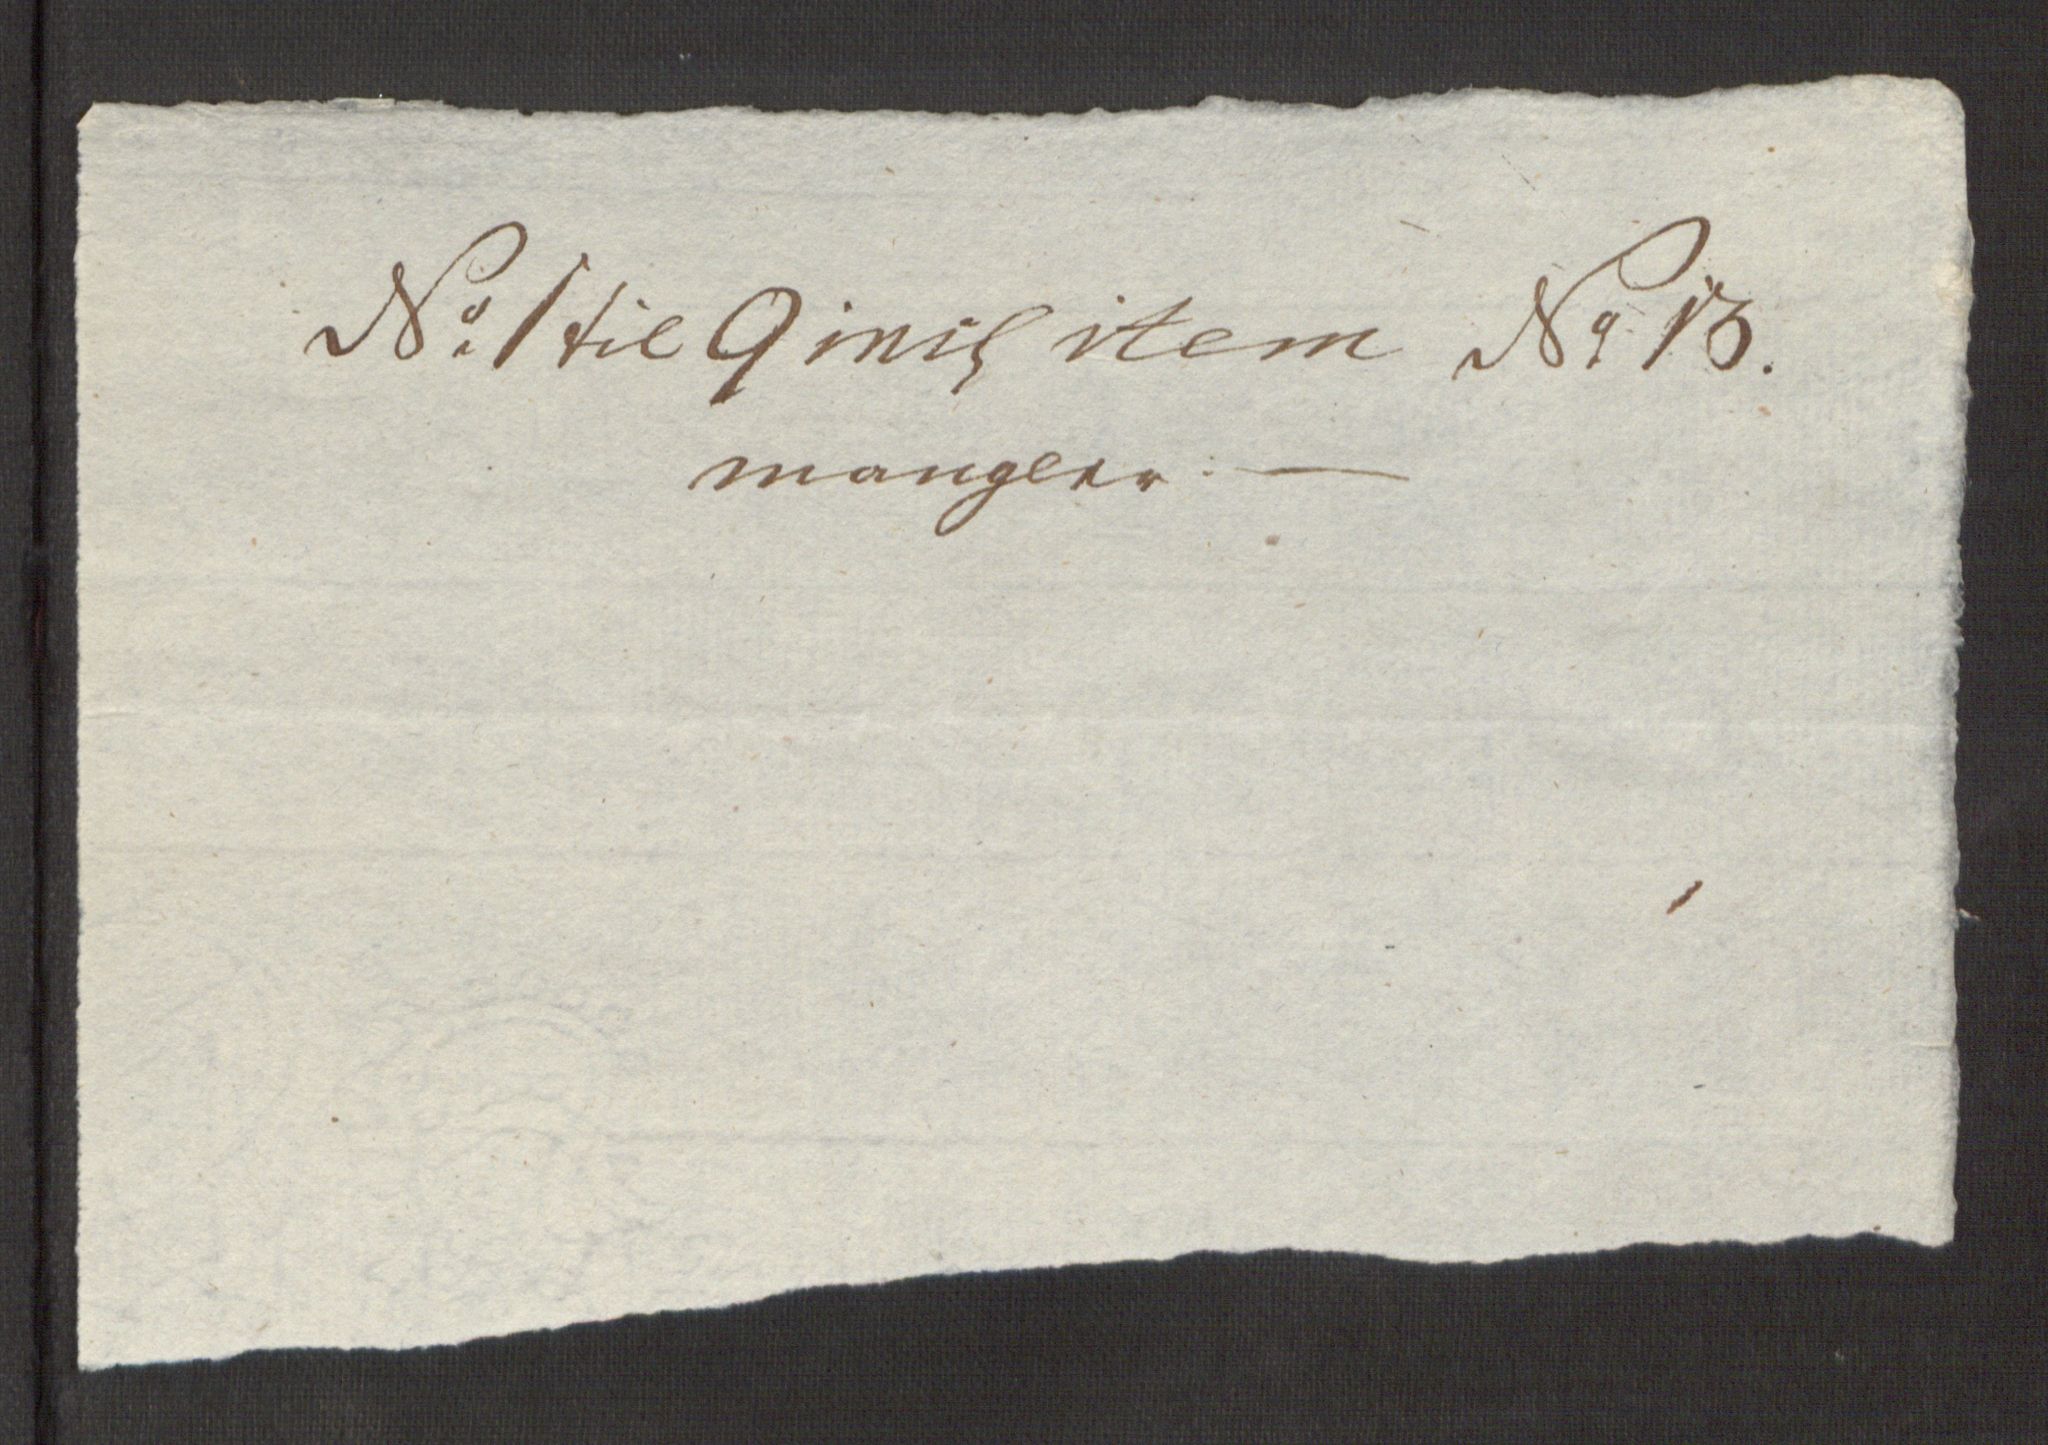 No. 1 til 9 incl item No 13.
mangler. —